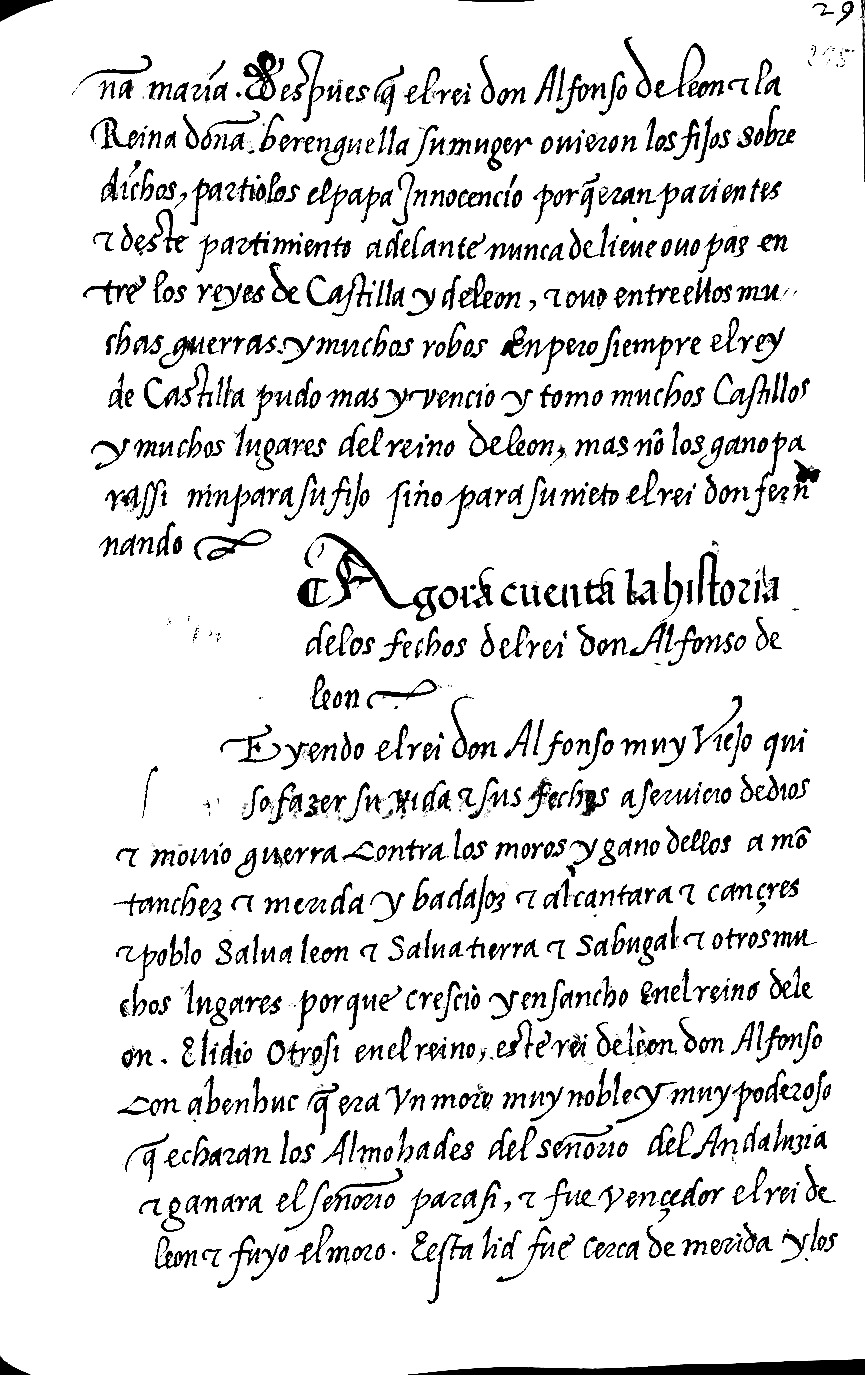 29
295
ña maria. Despues q̃ el rei don Alfonso de leon τ la
Reina doña berenguella su muger ovieron los fijos sobre
dichos, partiolos el papa Innocencio porq̃ eran parientes
τ deste partimiento adelante nunca de lieue ouo paz en
tre los reyes de Castilla y de leon, τ ovo entre ellos mu
chas guerras y muchos robos Enpero siempre el rey
de Castilla pudo mas y vencio y tomo muchos Castillos
y muchos lugares del reino de leon, mas nõ los gano pa
rassi nin para su fijo sino para su nieto el rei don fern
nando
Agora cuenta la historia
delos fechos del rei don Alfonso de
leon
Eyendo el rei don Alfonso muy Viejo qui
so fazer su vida τ sus fechos a servicio de dios
τ movio guerra contra los moros y gano dellos a mõ
tanchez τ merida y badajoz τ alcantara τ cançres
τ poblo Salua leon τ Saluatierra τ Sabugal τ otros mu
chos lugares porque crescio y ensancho en el reino de le
on. E lidio Otrosi en el reino, este rei de leon don Alfonso
con abenhuc q̃ era Vn moro muy noble y muy poderoso
q̃ echaran los Almohades del señorio del Andaluzia
τ ganara el señorio para si, τ fue vençedor el rei de
leon τ fuyo el moro. E esta lid fue cerca de merida y los